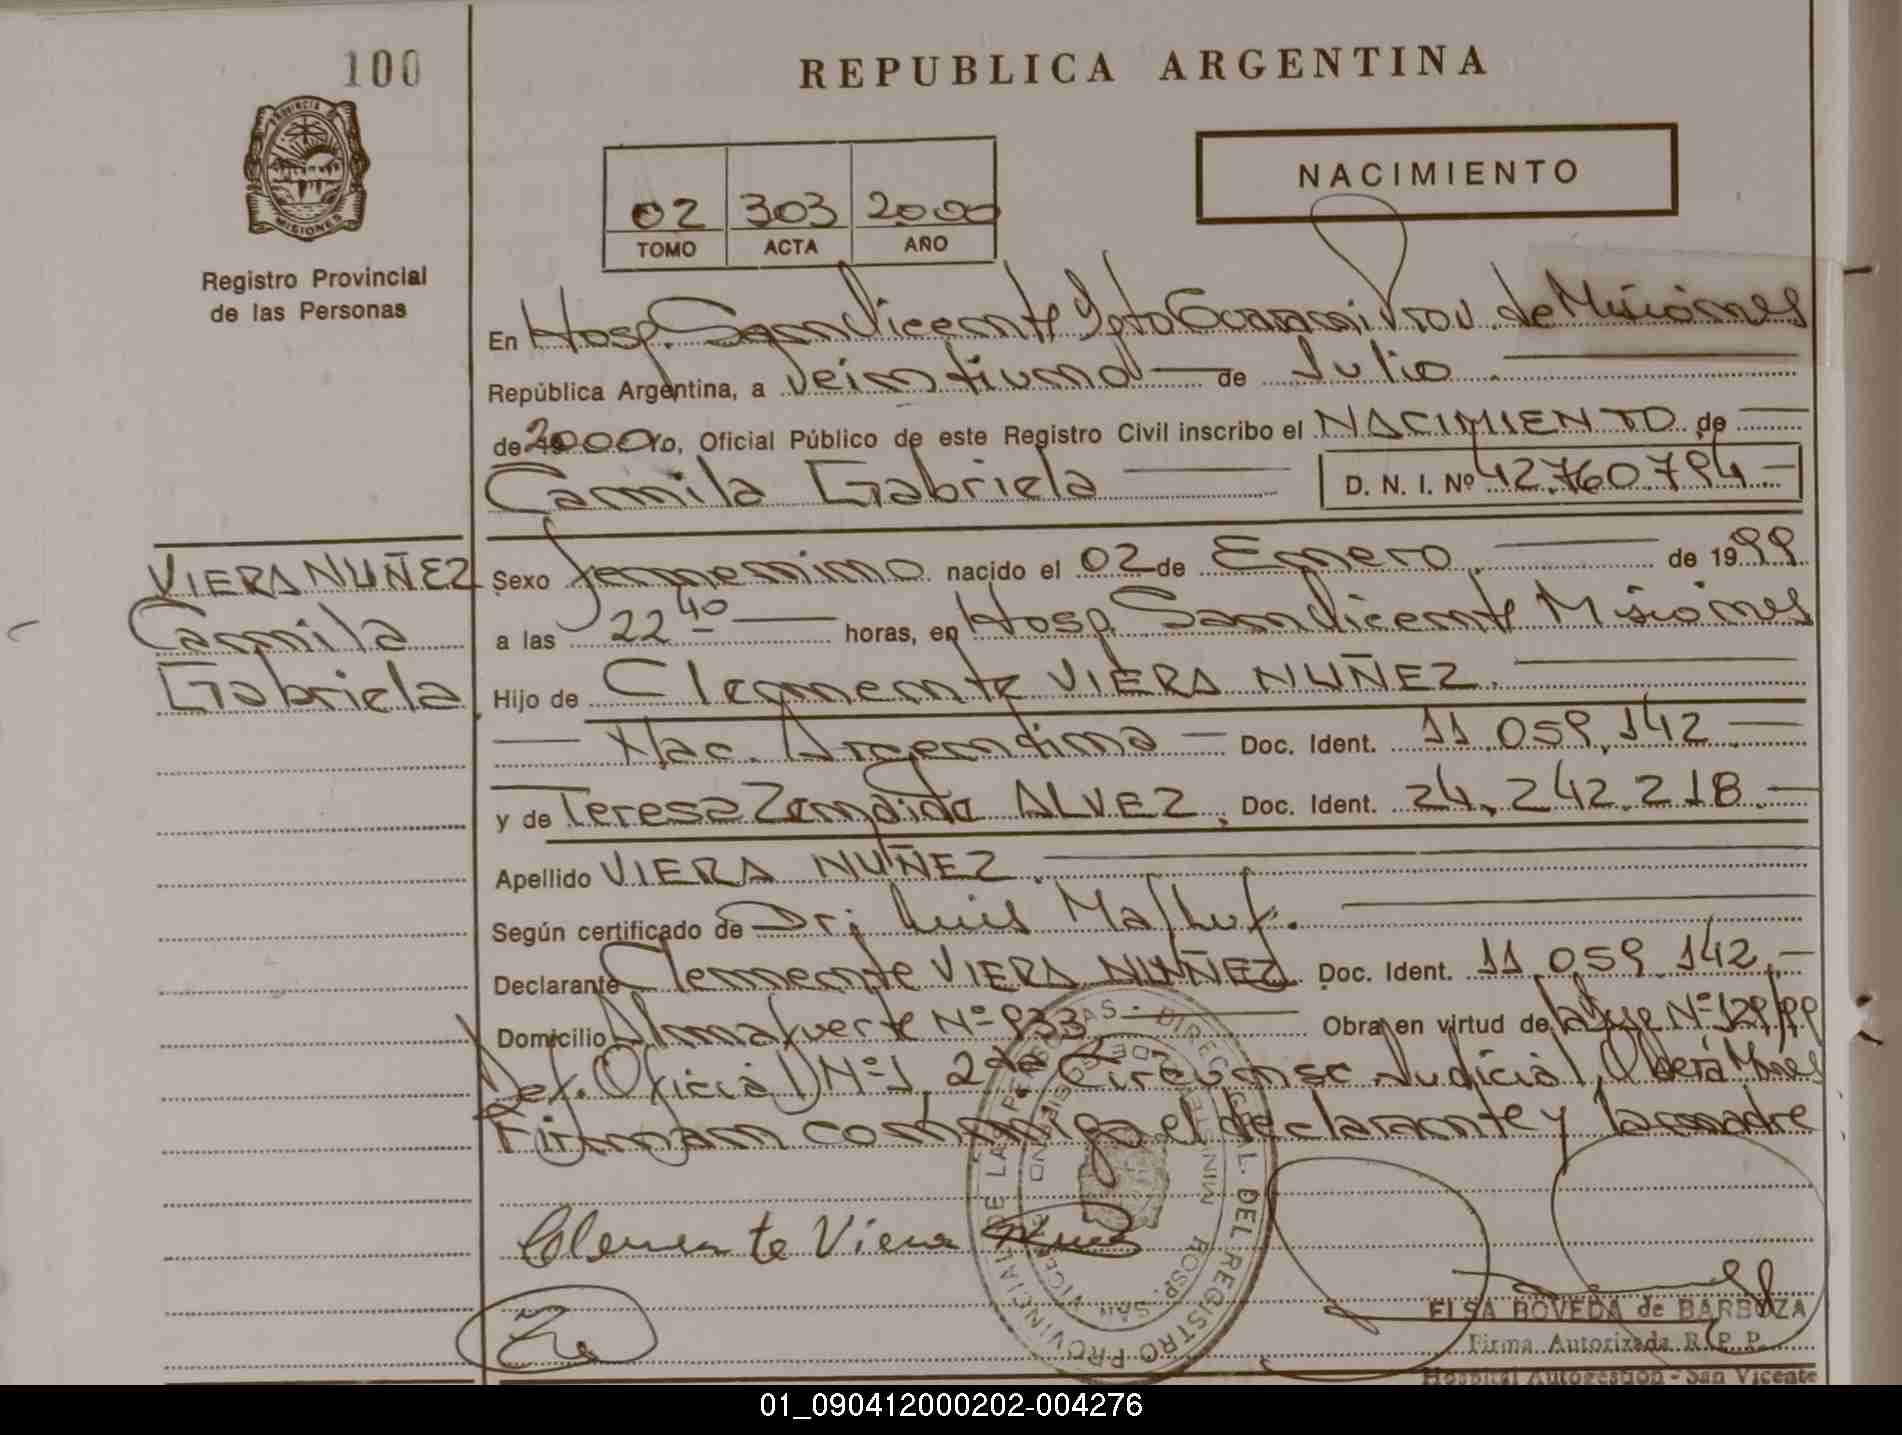 100
REPUBLICA ARGENTINA
NACIMIENTO
02 303 2000
TOMO ACTA AÑO
PROVINCIA DE
MISIONES
Registro Provincial
de las Personas
En Hosp. San Vicente, Dpto Guarani Prov. de Misiones
República Argentina, a veintiuno de Julio
de 2000, Oficial Público de este Registro Civil inscribo el NACIMIENTO de
Camila Gabriela D. N. I. Nº 42.760.794
VIERA NUÑEZ
Camila
Gabriela
Sexo femenino nacido el 02 de Enero de 1999
a las 22 40 horas, en Hosp. San Vicente Misiones
Hijo de Clemente VIERA NUÑEZ.
Nac. Argentina Doc. Ident. 11.059.142
y de Teresa ALVEZ, Doc. Ident. 24.242.218.
Apellido VIERA NUÑEZ.
Según certificado de Dr; Luis Malluf.
Declarante Clemente VIERA NUÑEZ Doc. Ident. 11.059.142
Domicilio Almafuerte Nº 933 Obra en virtud de Nº 129/99
Def. Oficial Nº 1 2da Circunsc. Judicial, Oberá Mnes
Firman conmigo el declarante y la madre
Clemente Viera
REGISTRO PROVINCIAL DE LAS PERSONAS - DIREC. GRAL. DEL
HOSP. SAN VICENTE
ELSA BOVEDA de BARBOZA
Firma Autorizada R. P. P.
Hospital Autogestión - San Vicente
01_090412000202-004276